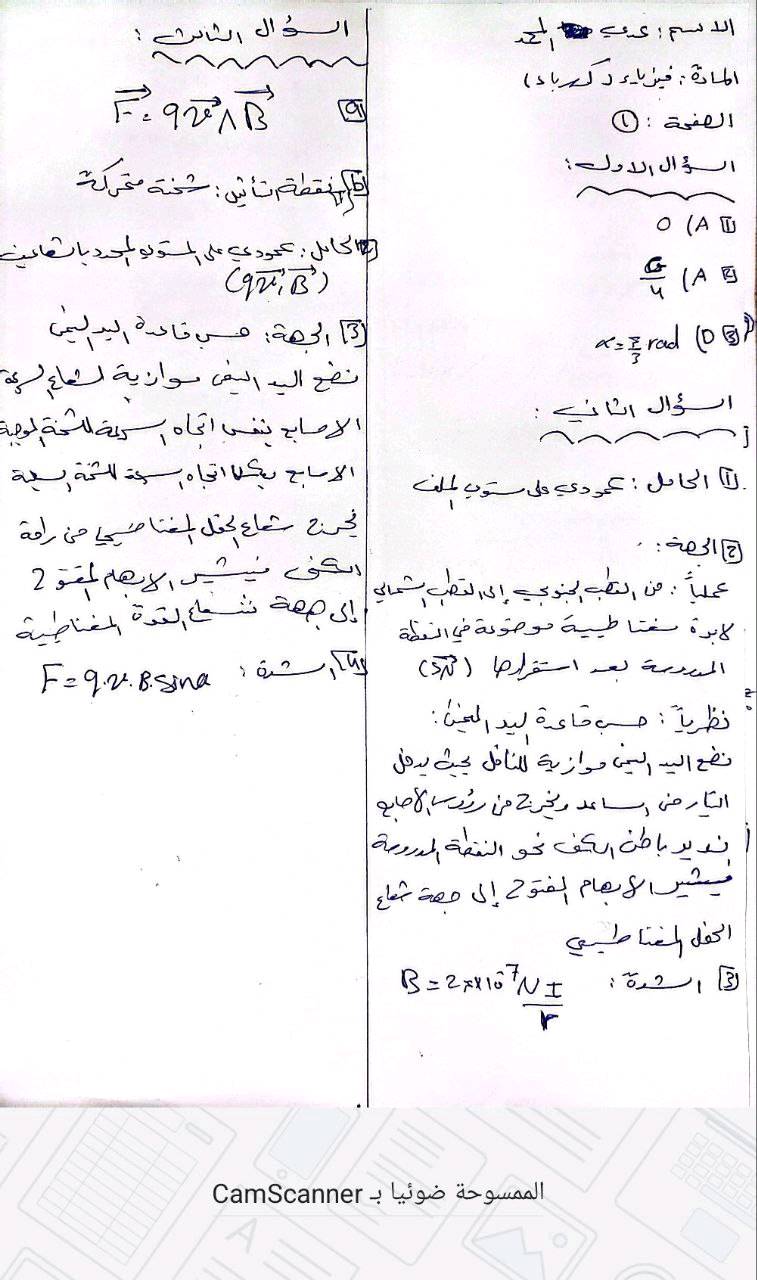 الاسم: عدي
المادة: فيزياء (كهرباء)
الصفحة: ①
السؤال الاول:
1 A) 0
2 A) G/4
3 D) α = π/3 rad
السؤال الثاني:
1 الحامل: عمودي على مستوي الملف
2 الجهة:
عملياً: من القطب الجنوبي إلى القطب الشمالي
لابرة مغناطيسية موضوعة في النقطة
المدروسة بعد استقرارها (SN)
نظرياً: حسب قاعدة اليد اليمنى:
نضع اليد اليمنى موازية للناقل بحيث يدخل
التيار من الساعد ويخرج من رؤوس الاصابع
ندير باطن الكف نحو النقطة المدروسة
فيشير الابهام المفتوح إلى جهة شعاع
الحقل المغناطيسي
3 الشدة: B = 2π×10⁻⁷ N I/r
السؤال الثالث:
a F = qv ∧ B
b 1 نقطة التأثير: شحنة متحركة
2 الحامل: عمودي على المستوي المحدد بالشعاعين
(qv, B)
3 الجهة: حسب قاعدة اليد اليمنى
نضع اليد اليمنى موازية لشعاع السرعة
الاصابع بنفس اتجاه السرعة للشحنة الموجبة
الاصابع بعكس اتجاه السرعة للشحنة السالبة
يخرج شعاع الحقل المغناطيسي من راحة
الكف فيشير الابهام المفتوح
إلى جهة شعاع القوة المغناطيسية
4 الشدة: F = q.v.B.sinα
الممسوحة ضوئيا بـ CamScanner